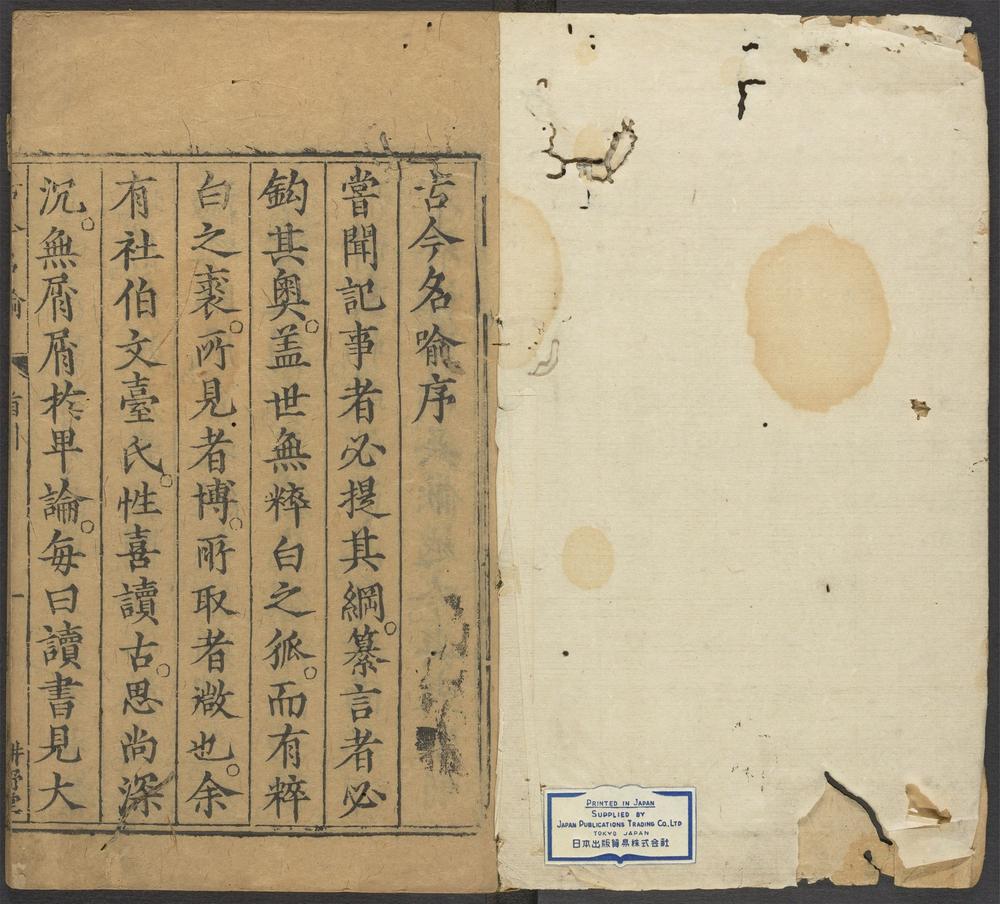 古今名喻序
嘗聞記事者必提其綱。纂言者必
鈎其奥。盖世無粹白之狐。而有粹
白之裘。所見者博。所取者微也。余
有社伯文臺氏。性喜讀古。思尚深
沉。無屑屑於卑論。每曰讀書見大
PRINTED IN JAPAN
SUPPLIED BY
JAPAN PUBLICATIONS TRADING CO., LTD
TOKYO JAPAN
日本出版貿易株式会社